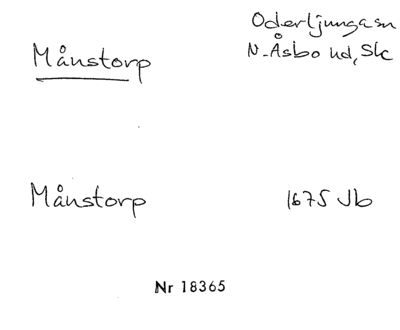 Oderljunga sn
Månstorp N. Åsbo hd, Sk
Månstorp 1675 Jb
Nr 18365